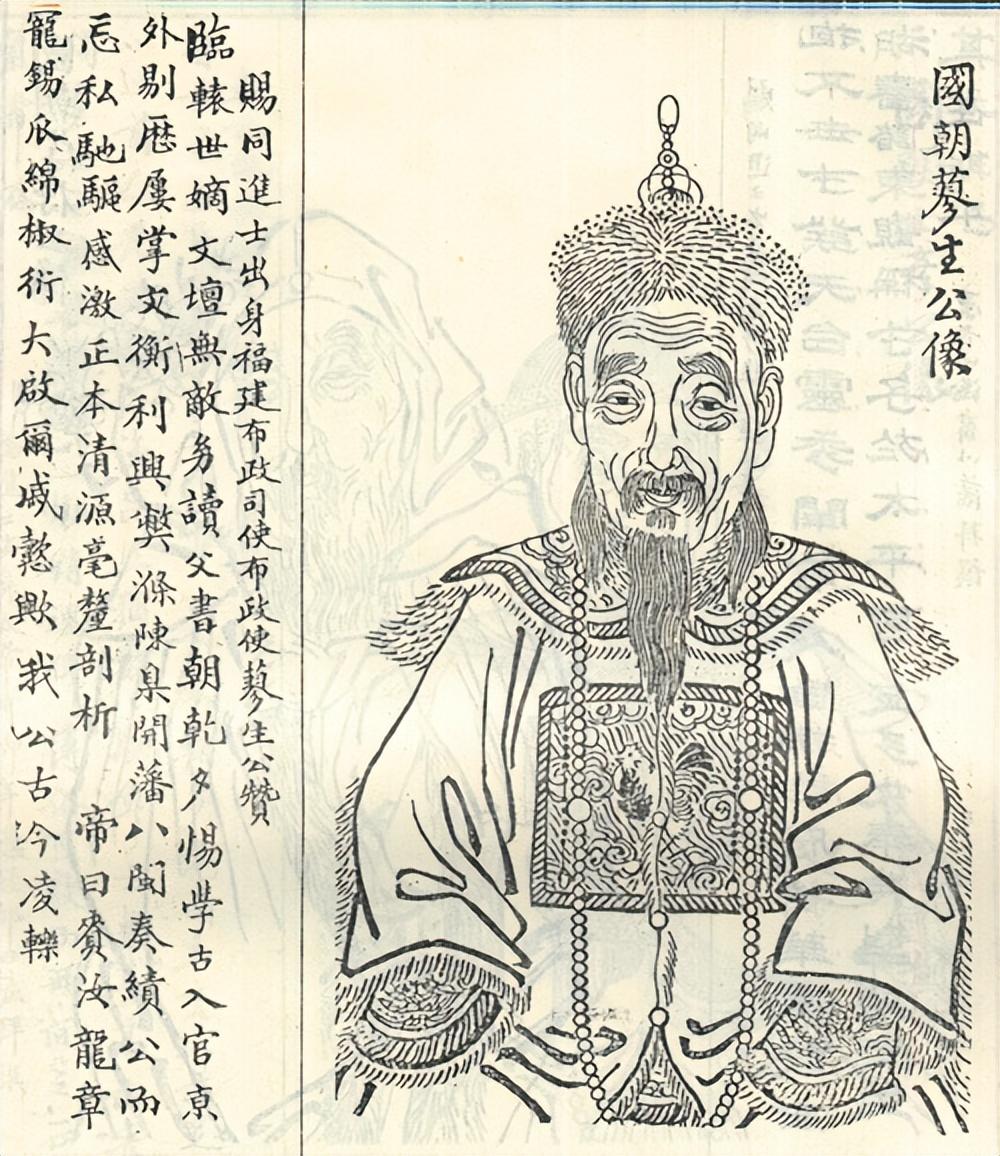 國朝蓼生公像
賜同進士出身福建布政司使布政使蓼生公贊
臨轅世嫡文壇無敵多讀父書朝乾夕惕學古入官京
外剔歷屢掌文衡利興獘滌陳臬開藩八閩奏績公而
忘私馳驅感激正本清源毫釐剖析帝曰賚汝龍章
寵錫瓜綿椒衍大啟爾戚懿歟我公古今凌轢